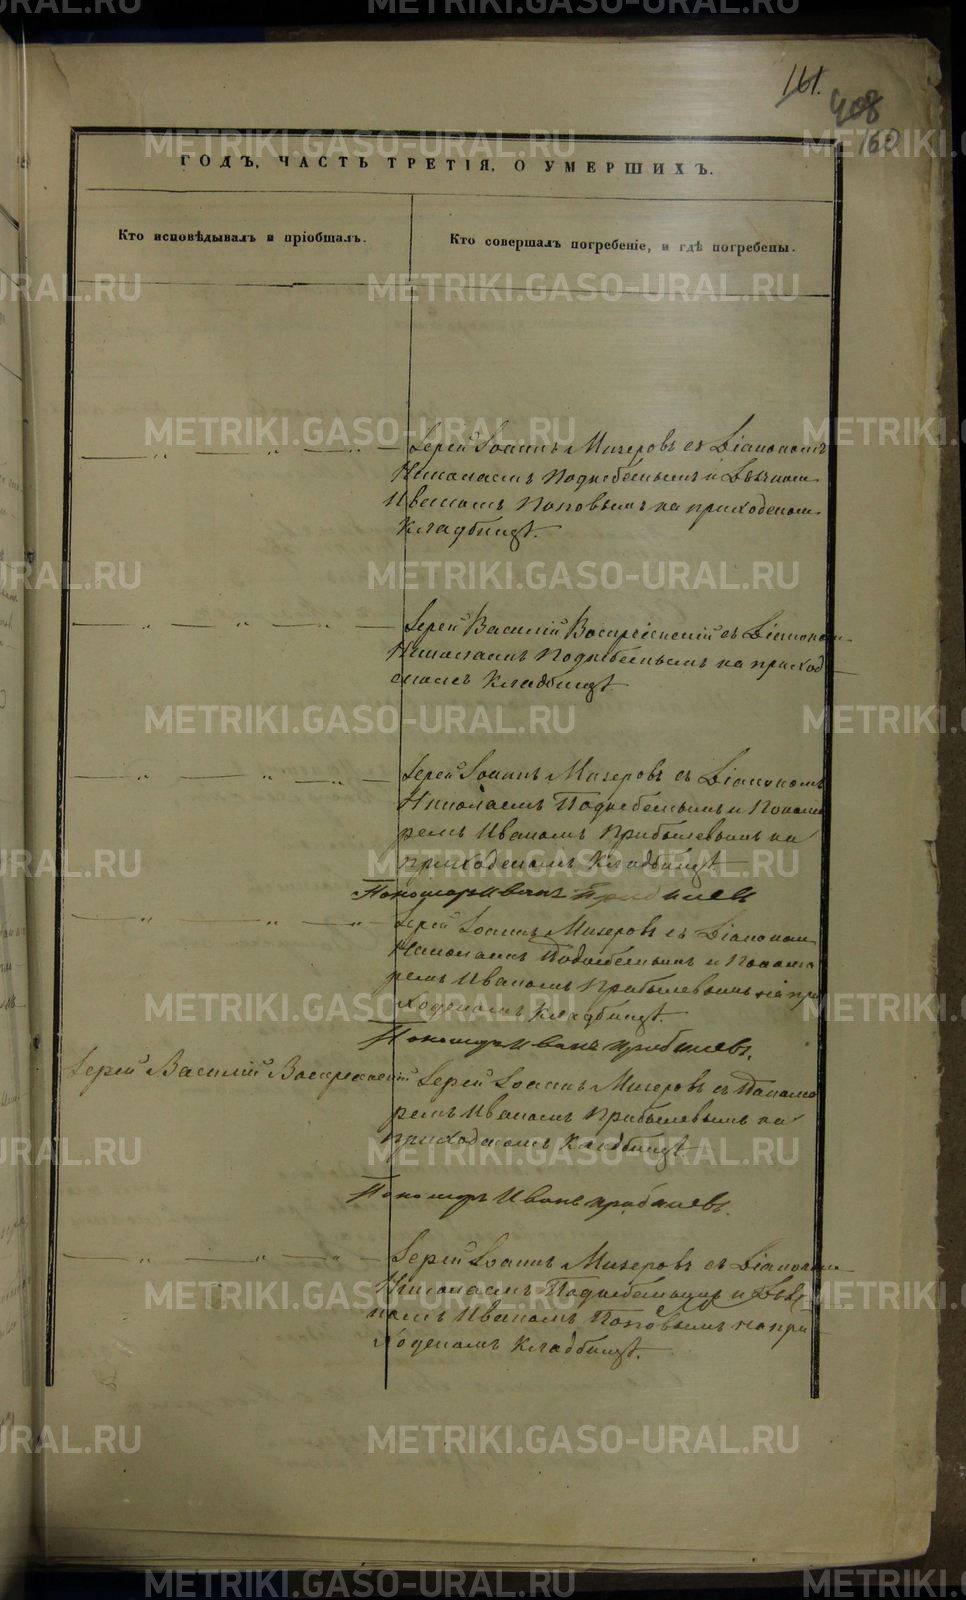 161.
408
160
ГОДЪ, ЧАСТЬ ТРЕТІЯ, О УМЕРШИХЪ.
Кто исповѣдывалъ и пріобщалъ.
Кто совершалъ погребеніе, и гдѣ погребены.
— „ — „ — „ — Іерей Іоаннъ Мизеровъ съ Діакономъ
Николаемъ Поднебеснымъ и Дьячкомъ
Иваномъ Поповымъ на приходскомъ
кладбищѣ.
— „ — „ — „ — Іерей Василій Воскресенскій съ Діакономъ
Николаемъ Поднебеснымъ на приход
скомъ кладбищѣ
— „ — „ — „ — Іерей Іоаннъ Мизеровъ съ Діакономъ
Николаемъ Поднебеснымъ и Понома
ремъ Иваномъ Прибылевымъ на
приходскомъ кладбищѣ
Пономарь Иванъ Прибылев
— „ — „ — „ — Іерей Іоаннъ Мизеровъ съ Діакономъ
Николаемъ Поднебеснымъ и Понома
ремъ Иваномъ Прибылевымъ на при
ходскомъ кладбищѣ.
Пономарь Иванъ Прибылевъ.
Іерей Василій Воскресенскій Іерей Іоаннъ Мизеровъ съ Понома
ремъ Иваномъ Прибылевымъ на
приходскомъ кладбищѣ
Пономарь Иванъ Прибылевъ.
— „ — „ — „ — Іерей Іоаннъ Мизеровъ съ Діакономъ
Николаемъ Поднебеснымъ и Дьяч
комъ Иваномъ Поповымъ на при
ходскомъ кладбищѣ.
METRIKI.GASO-URAL.RU